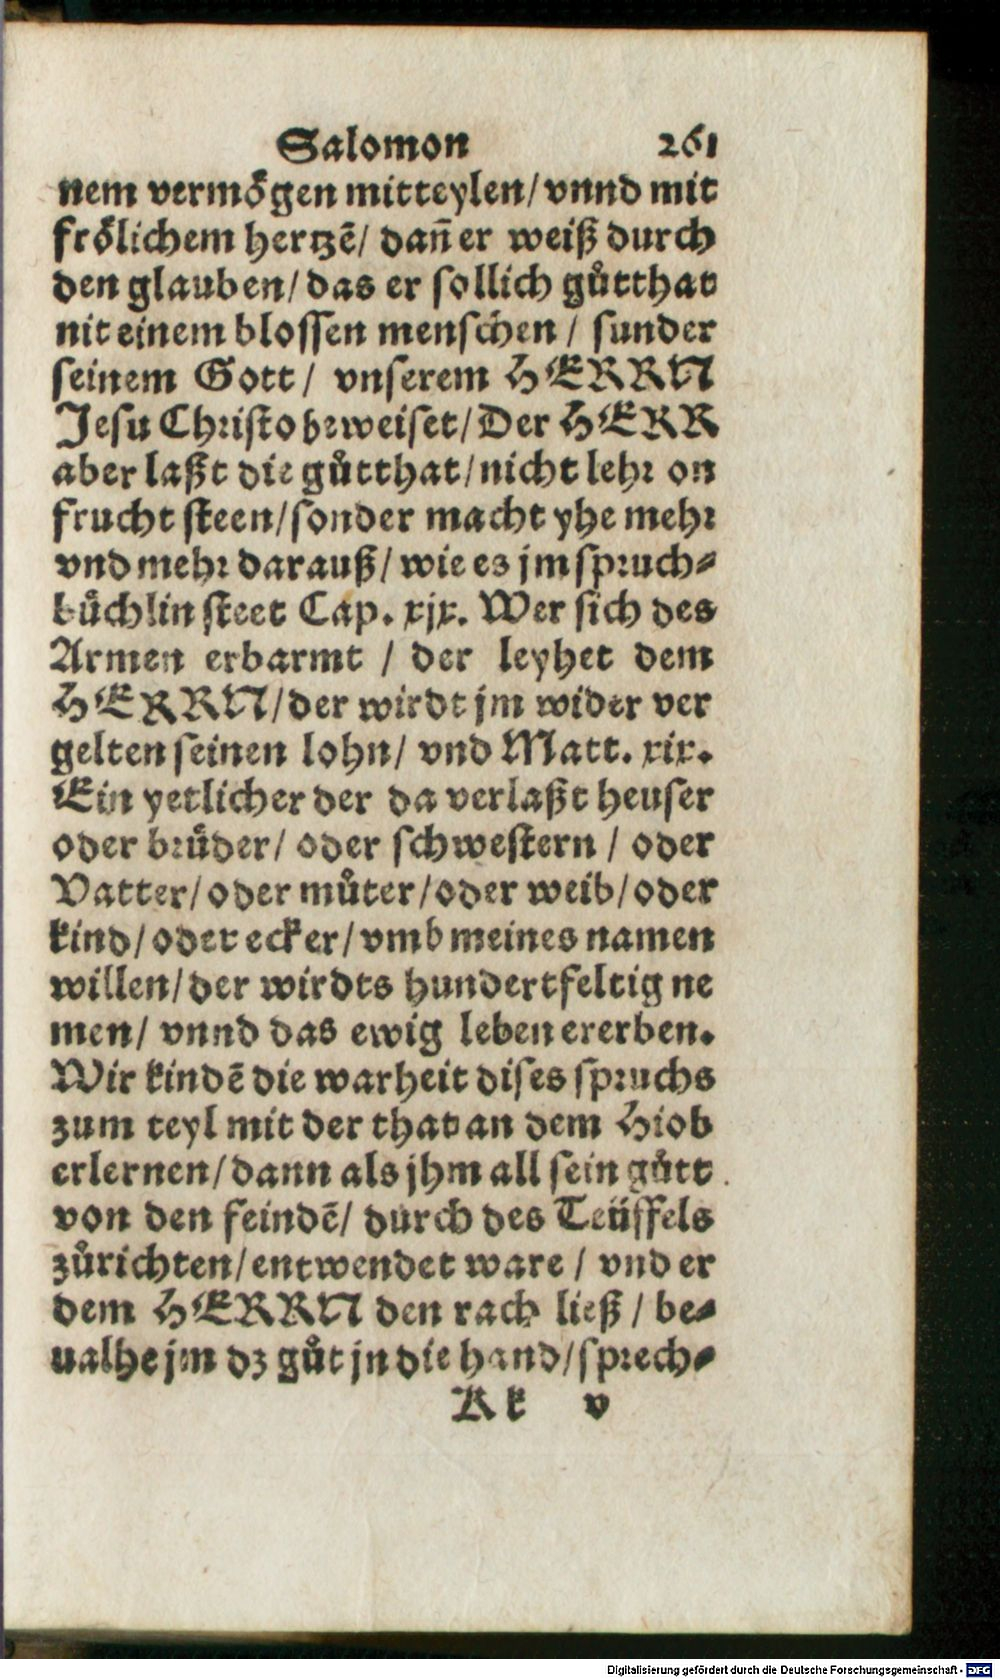 Salomon 261
nem vermoͤgen mitteylen/ vnnd mit
froͤlichem hertzē/ dañ er weiß durch
den glauben/ das er sollich guͦtthat
nit einem blossen menschen / sunder
seinem Gott/ vnserem HERRN
Jesu Christo beweiset/ Der HERR
aber laßt die guͦtthat/ nicht lehr on
frucht steen/ sonder macht yhe mehr
vnd mehr darauß/ wie es jm spruch⸗
buͤchlin steet Cap. xjx. Wer sich des
Armen erbarmt / der leyhet dem
HERRN/ der wirdt jm wider ver
gelten seinen lohn/ vnd Matt. xix.
Ein yetlicher der da verlaßt heuser
oder bruͤder/ oder schwestern / oder
Vatter/ oder muͦter/ oder weib/ oder
kind/ oder ecker/ vmb meines namen
willen/ der wirdts hundertfeltig ne
men/ vnnd das ewig leben ererben.
Wir kindē die warheit dises spruchs
zum teyl mit der that an dem Hiob
erlernen/ dann als jhm all sein guͦtt
von den feindē/ durch des Teüffels
zuͦrichten/ entwendet ware / vnd er
dem HERRN den rach ließ / be⸗
ualhe jm dz guͦt jn die hand/ sprech⸗
Kk v
Digitalisierung gefördert durch die Deutsche Forschungsgemeinschaft - DFG